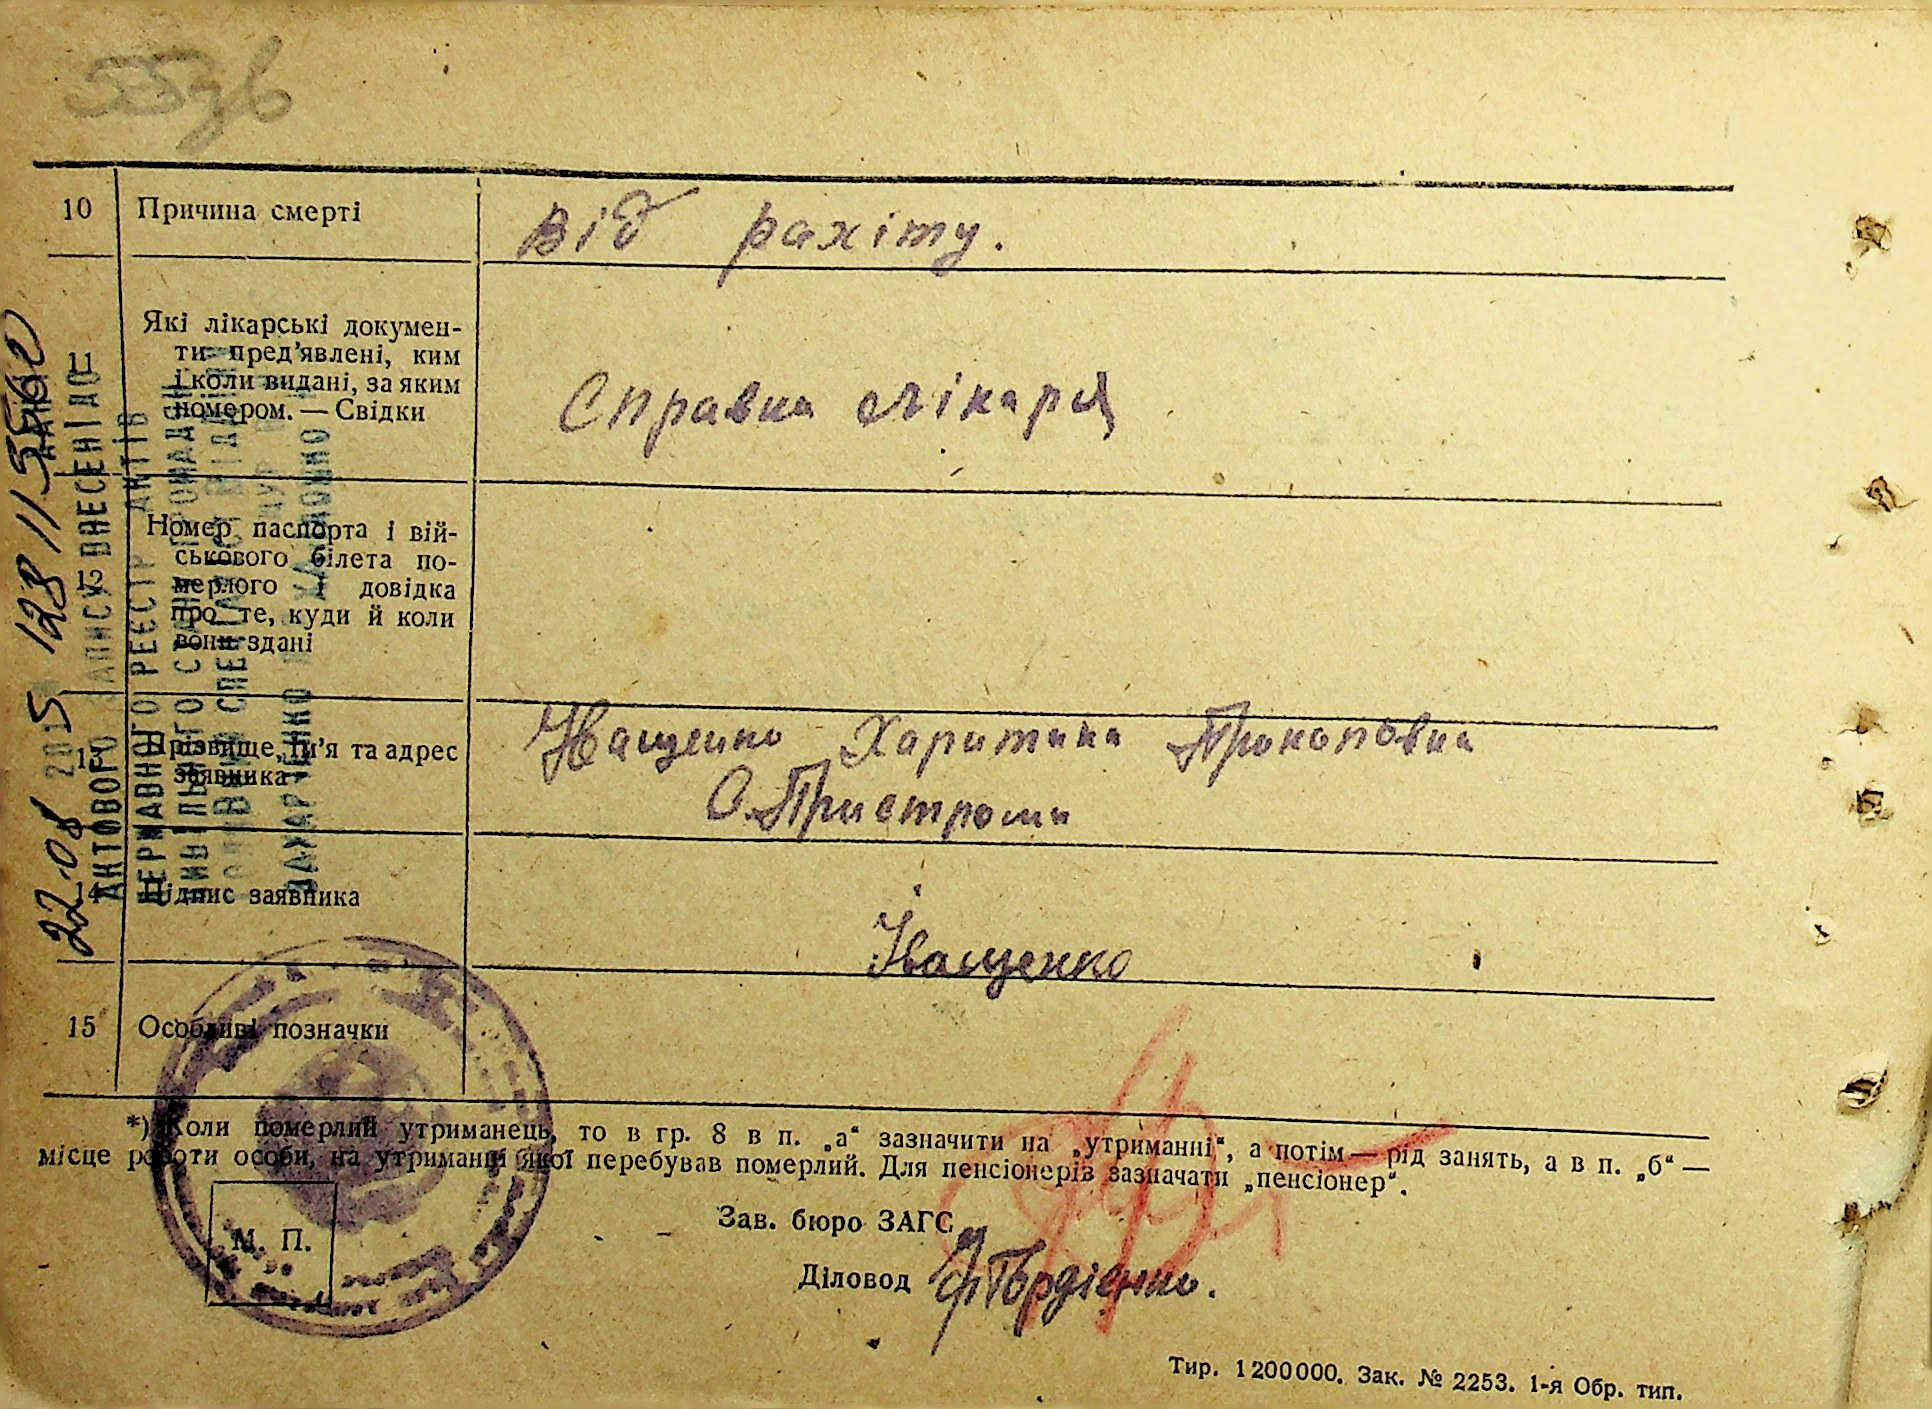 55зв
10 Причина смерті
Від рахіту.
11 Які лікарські докумен-
ти пред’явлені, ким
і коли видані, за яким
номером. — Свідки
Справка лікаря
12 Номер паспорта і вій-
ськового білета по-
мерлого і довідка
про те, куди й коли
вони здані
13 Прізвище, ім’я та адрес
заявника
Іващенко Харитина Прокоповна
С. Пристроми
14 Підпис заявника
Іващенко
15 Особливі позначки
*) Коли померлий утриманець, то в гр. 8 в п. „а“ зазначити на „утриманні“, а потім — рід занять, а в п. „б“ —
місце роботи особи, на утриманні якої перебував померлий. Для пенсіонерів зазначати „пенсіонер“.
М. П.
Зав. бюро ЗАГС
Діловод Гордієнко.
Тир. 1200000. Зак. № 2253. 1-я Обр. тип.
АКТОВОГО ЗАПИСУ ВНЕСЕНІ ДО
ДЕРЖАВНОГО РЕЄСТРУ АКТІВ
ЦИВІЛЬНОГО СТАНУ ГРОМАДЯН
ЗАХАРЧЕНКО
22.08 2015